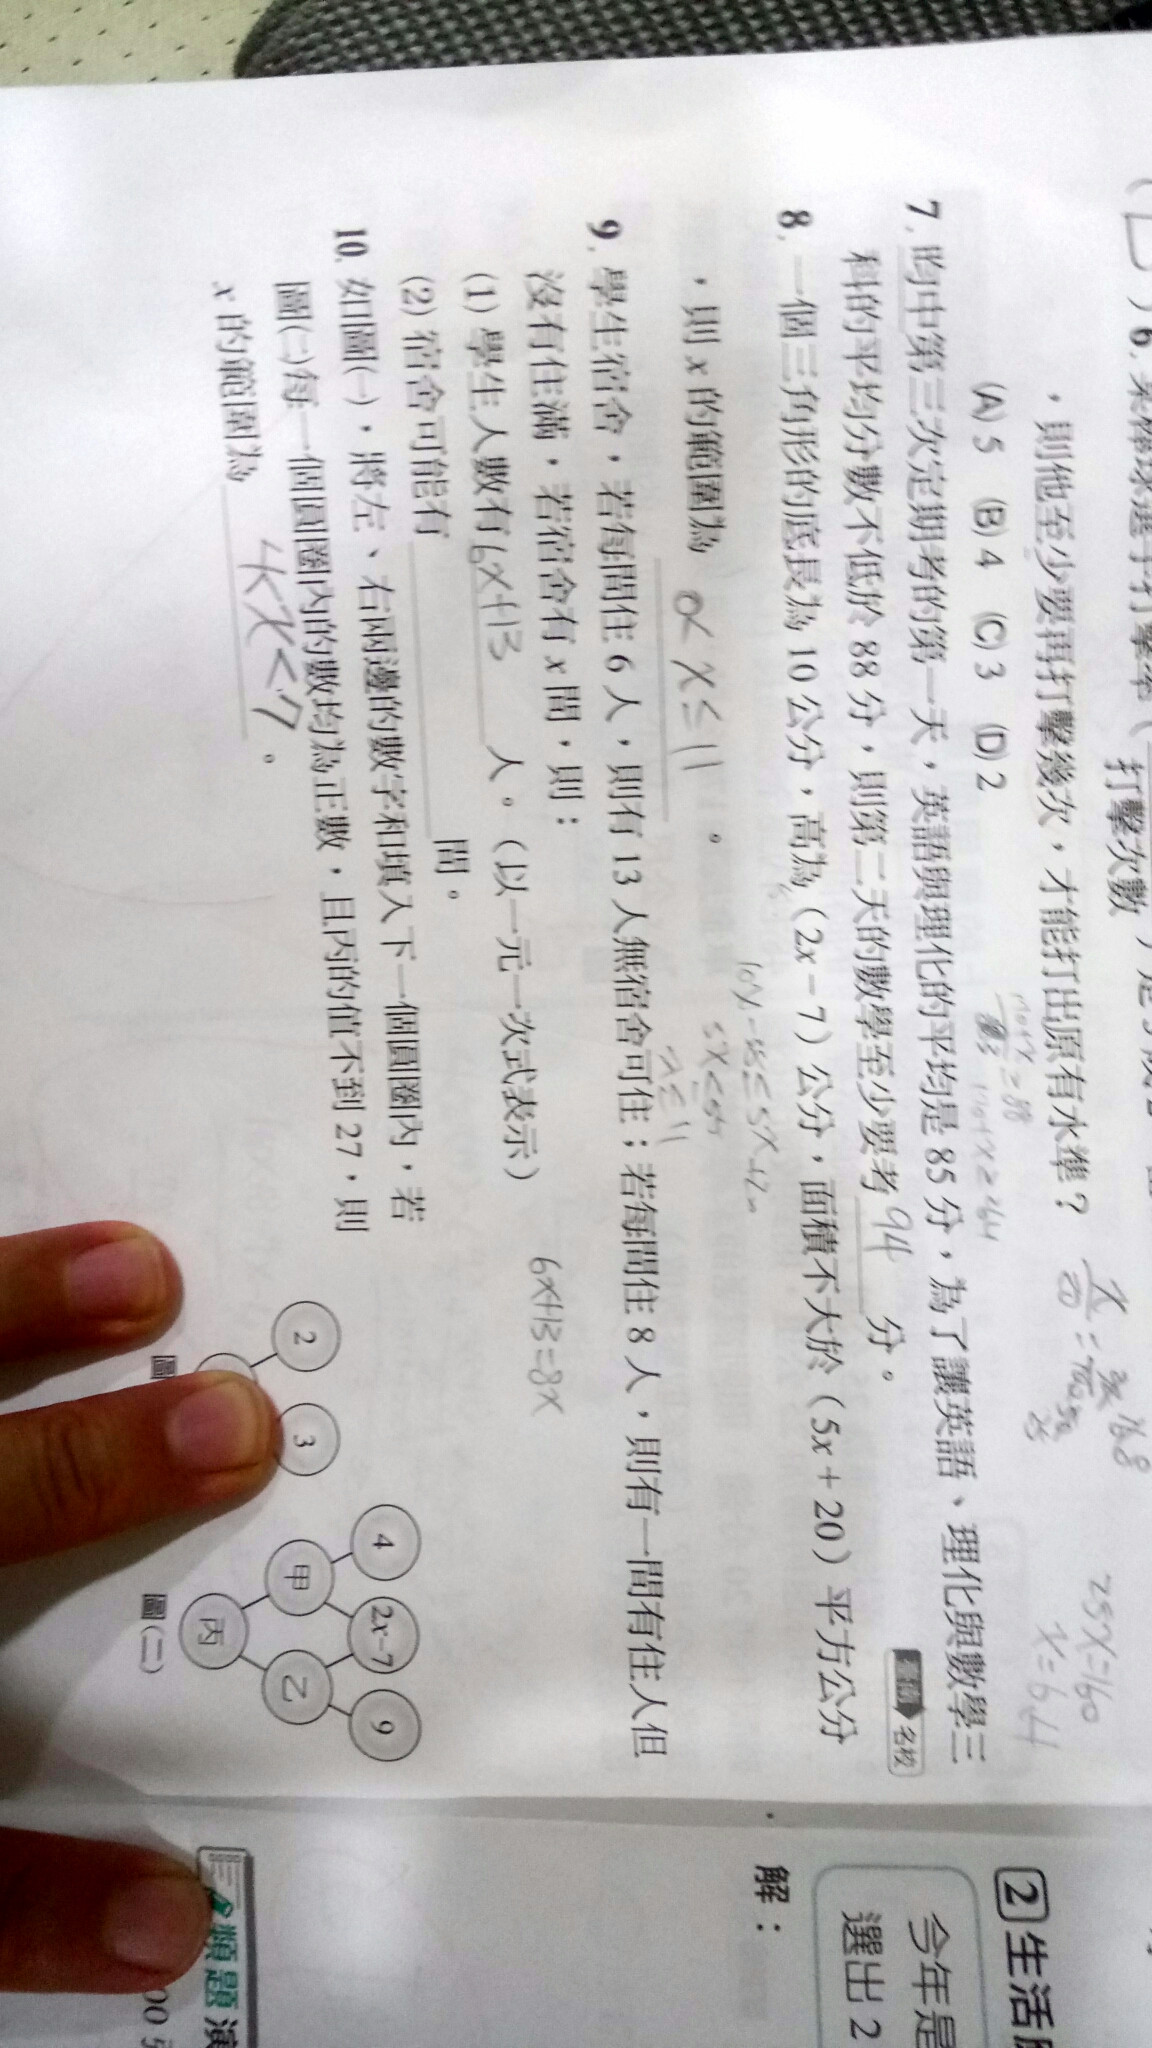 ，則他至少要再打擊幾次，才能打出原有水準？
(A) 5 (B) 4 (C) 3 (D) 2
7. 昀中第三次定期考的第一天，英語與理化的平均是 85 分，為了讓英語、理化與數學三
科的平均分數不低於 88 分，則第二天的數學至少要考 94 分。
名校
8. 一個三角形的底長為 10 公分，高為（2x－7）公分，面積不大於（5x＋20）平方公分
，則 x 的範圍為 x≤11 。
x≤11
9. 學生宿舍，若每間住 6 人，則有 13 人無宿舍可住；若每間住 8 人，則有一間有住人但
沒有住滿，若宿舍有 x 間，則：
(1) 學生人數有 6x+13 人。（以一元一次式表示）
6x+13=8x
(2) 宿舍可能有 間。
10. 如圖(一)，將左、右兩邊的數字和填入下一個圓圈內，若
圖(二)每一個圓圈內的數均為正數，且丙的值不到 27，則
x 的範圍為 4<x<7 。
2 3
4 2x−7 9
甲 乙
丙
圖(二)
25x=160
x=6.4
打擊次數
2 生活
今年是
選出 2
解：
類題演